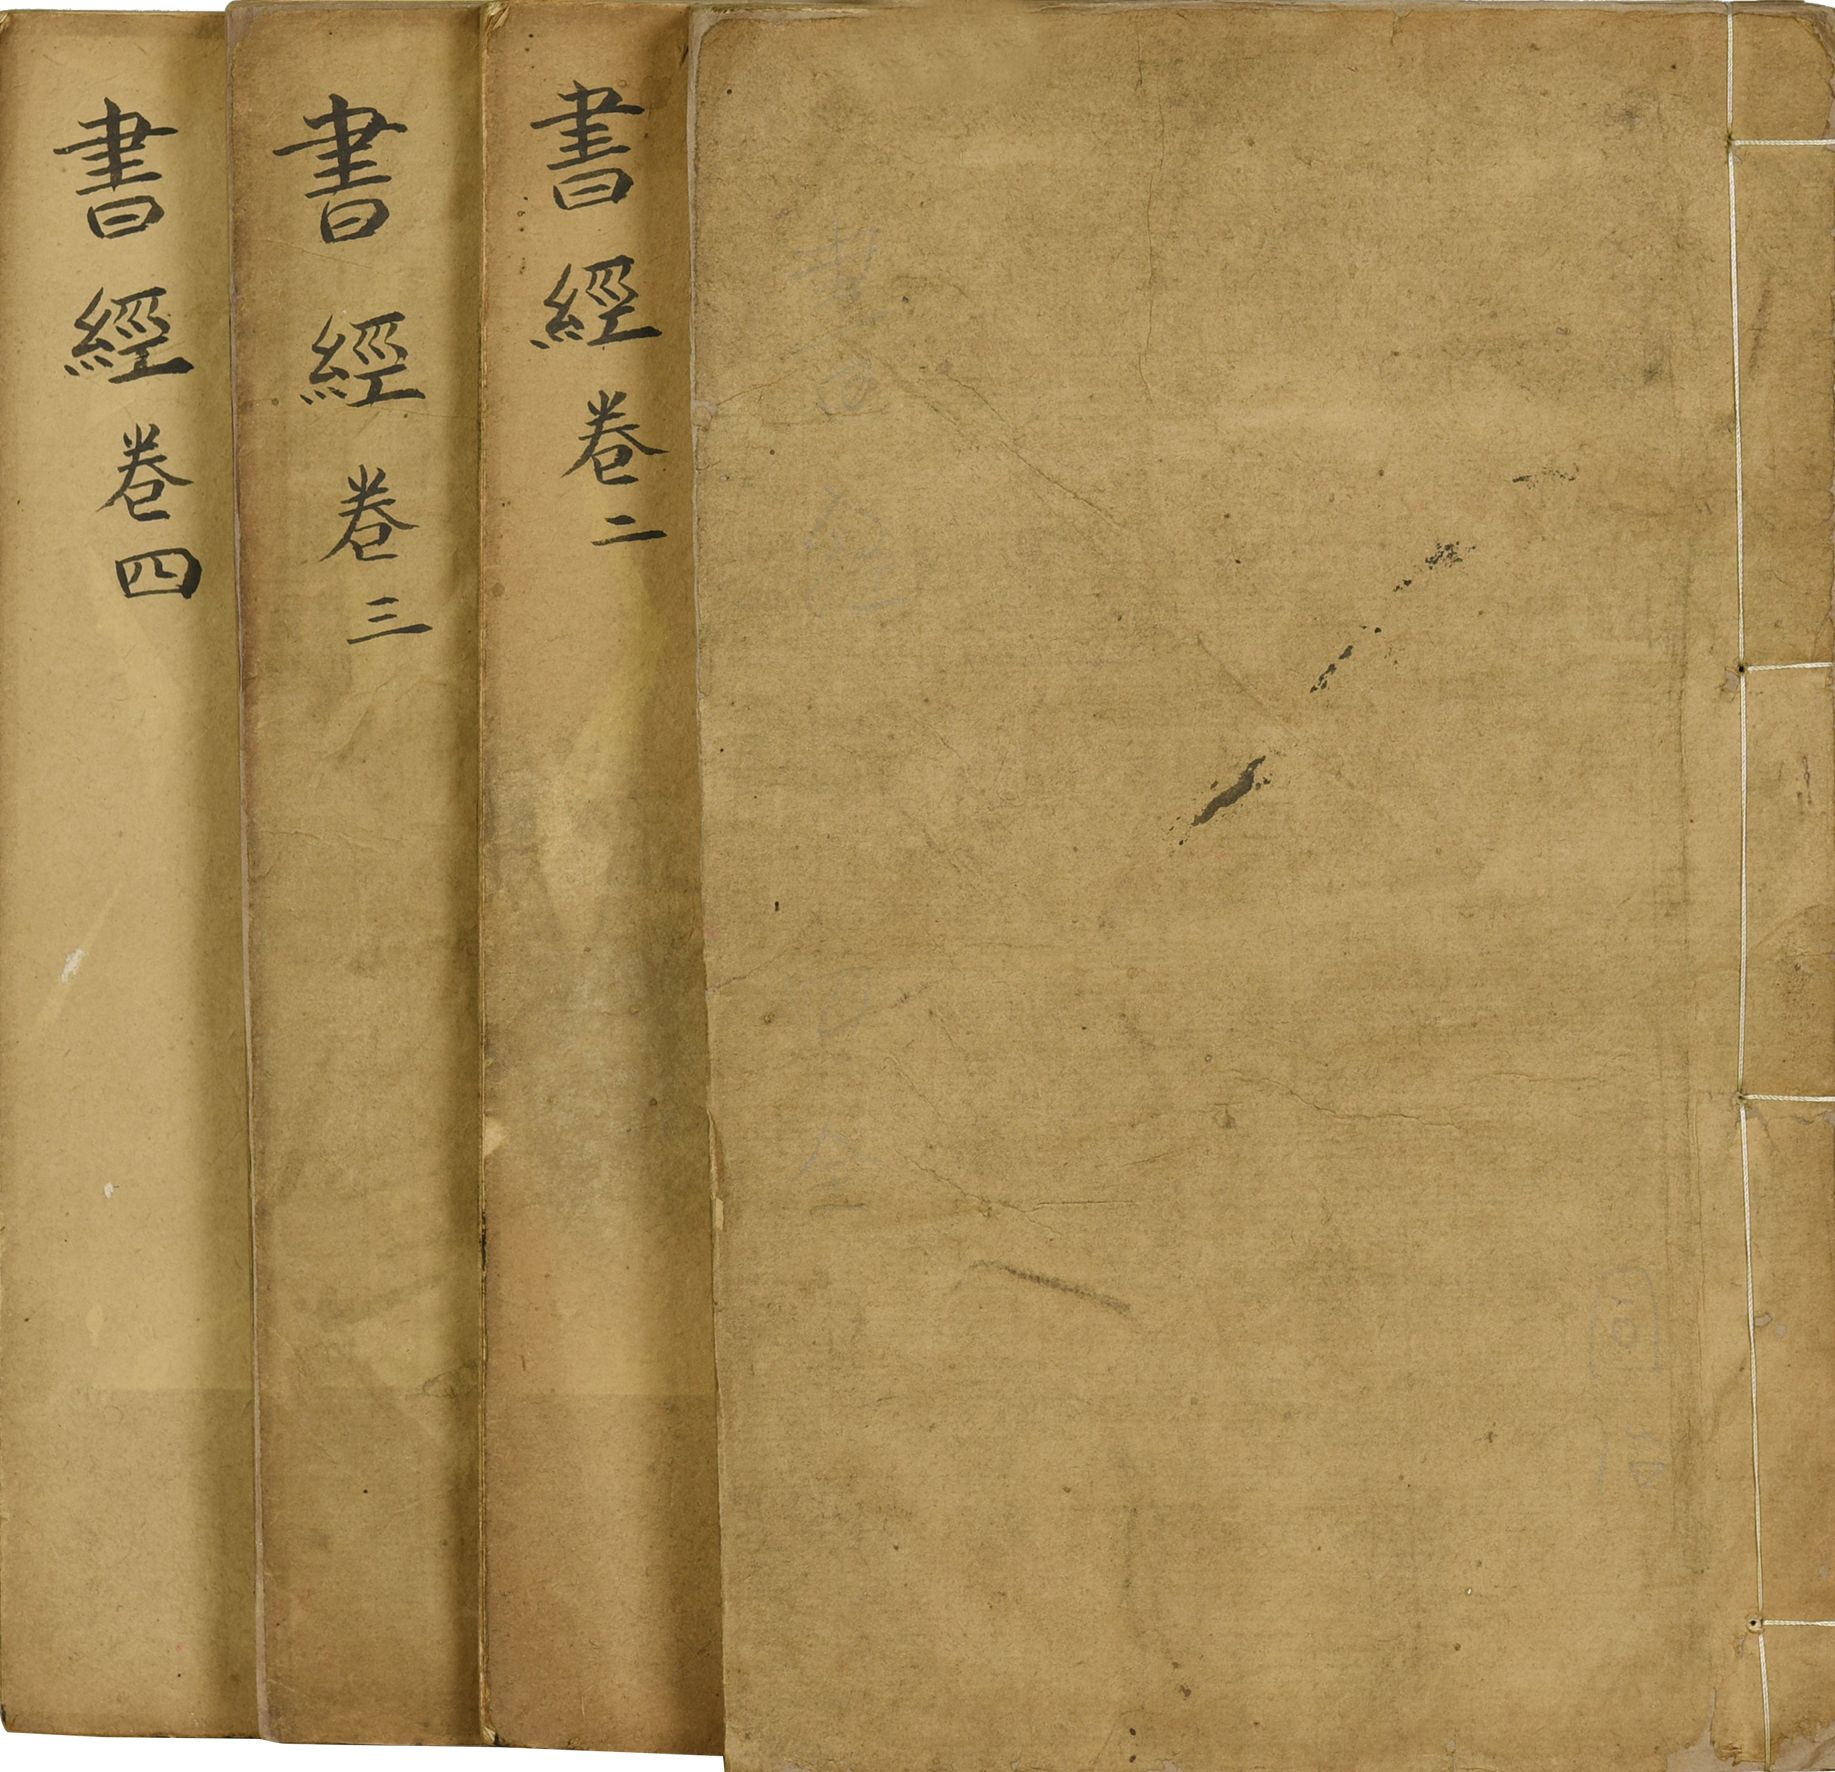 書經
書經卷二
書經卷三
書經卷四